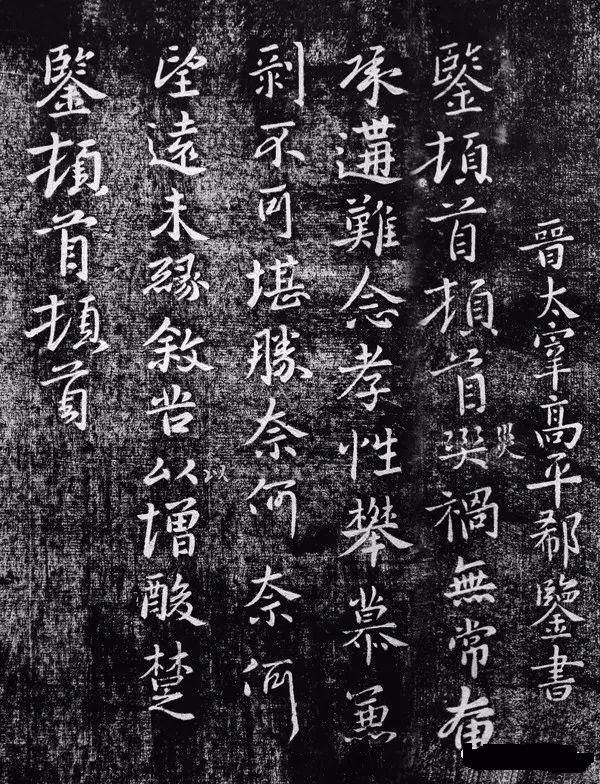 晉太宰高平郗鑒書
鑒頓首頓首災禍無常奄
災
承遘難念孝性攀慕兼
剥不可堪勝奈何奈何
望遠未緣敘苦以增酸楚
以
鑒頓首頓首